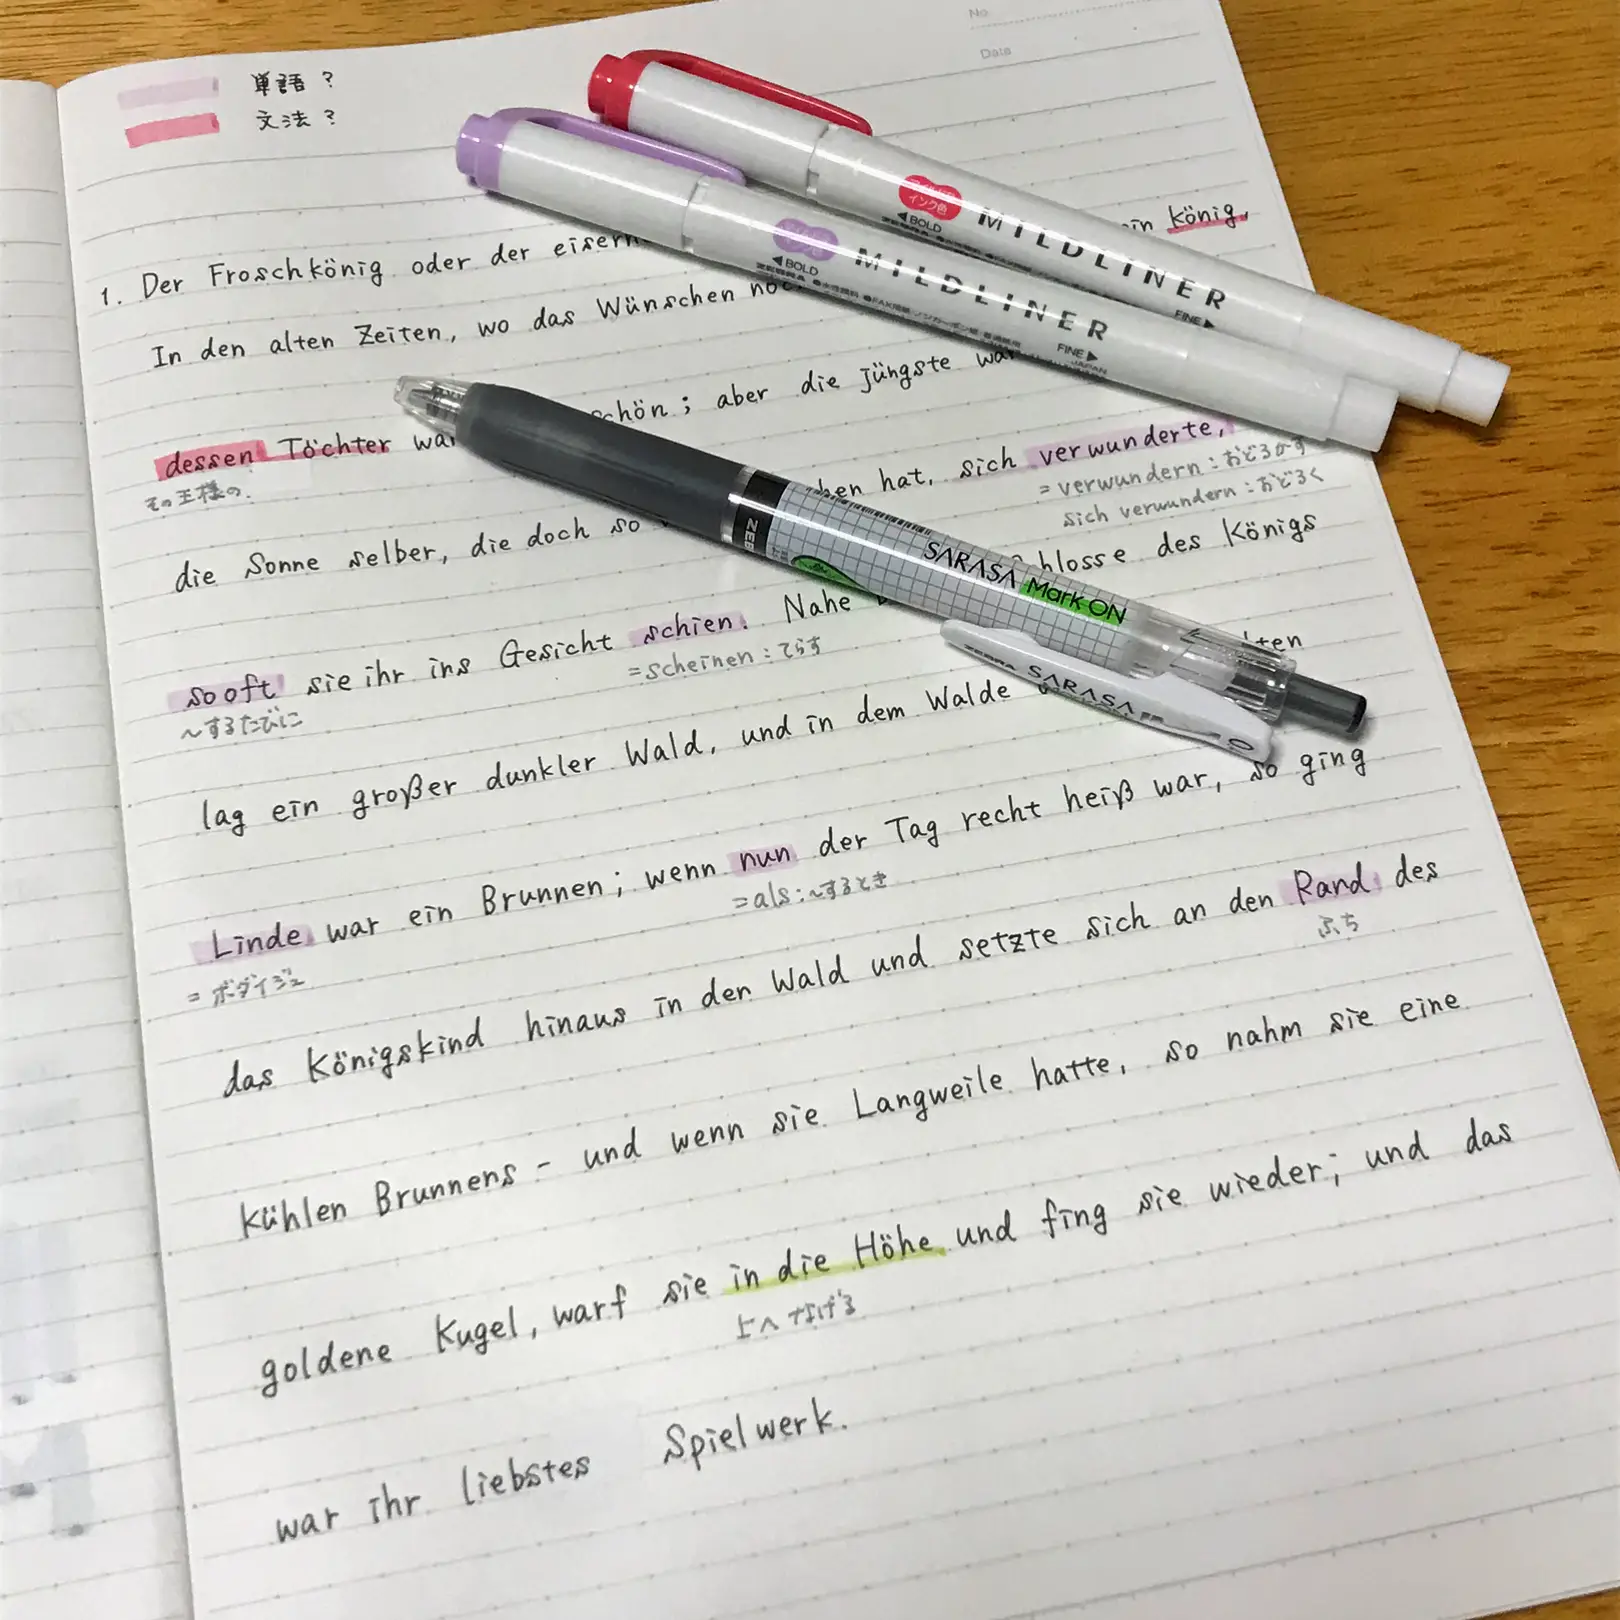 No.
Date
単語?
文法?
1. Der Froschkönig oder der eisern
In den alten Zeiten, wo das Wünschen noch ein König,
dessen Töchter war schön; aber die jüngste war
その王様の.
die Sonne selber, die doch so hat, sich verwunderte,
= verwundern:おどろかす
sich verwundern:おどろく
sooft sie ihr ins Gesicht schien. Nahe des Königs
~するたびに
=scheinen:てらす
lag ein großer dunkler Wald, und in dem Walde
Linde war ein Brunnen; wenn nun der Tag recht heiß war, so ging
= ボダイジュ
=als:~するとき
das Königskind hinaus in den Wald und setzte sich an den Rand des
ふち
kühlen Brunnens - und wenn sie Langweile hatte, so nahm sie eine
goldene Kugel, warf sie in die Höhe und fing sie wieder; und das
上へなげる
war ihr liebstes Spielwerk.
インク色
◀BOLD
ZEBRA
MILDLINER
FINE▶
◀BOLD
ZEBRA
MILDLINER
FINE▶
JAPAN
ZEB
SARASA Mark ON
ZEBRA SARASA